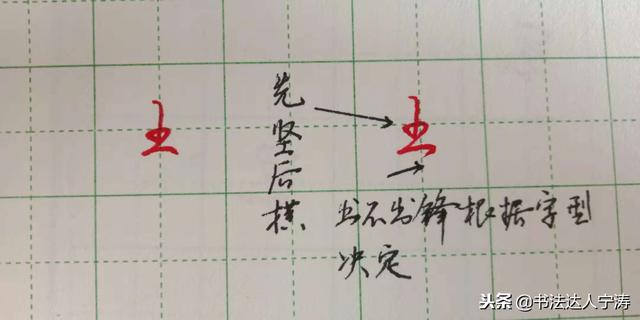 先竖后横
出不出锋根据字型
决定
头条 @书法达人宁涛